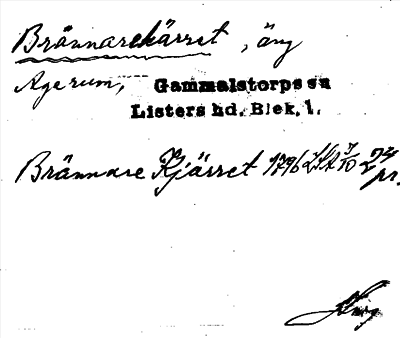 Brännarekärret, äng
Agerum, Gammalstorps sn
Listers hd. Blek. l.
Brännare Kjärret 1796
pr.